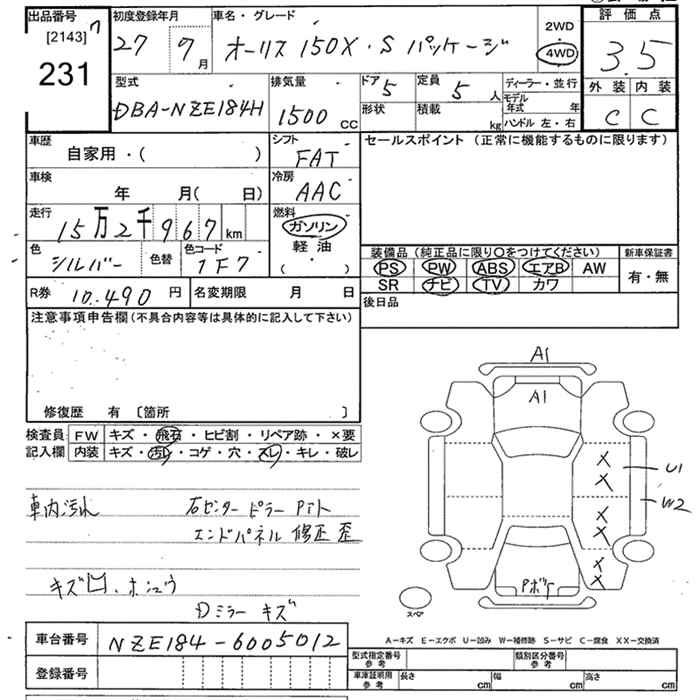 出品番号
[2143]
231
初度登録年月
27 9月
車名・グレード
オーリス 150X・S パッケージ
2WD
4WD
評価点
3.5
外装 内装
C C
型式
DBA-NZE184H
排気量
1500 CC
ドア 5
形状
定員 5 人
積載 kg
ディーラー・並行
モデル年式 年
ハンドル 左・右
車歴
自家用・( )
シフト
FAT
セールスポイント (正常に機能するものに限ります)
車検
年 月( 日)
冷房
AAC
走行
15万2千967 km
燃料
ガソリン
軽油
( ・ )
色
シルバー
色替
色コード
1F7
装備品 (純正品に限り〇をつけてください)
新車保証書
PS PW ABS エアB AW
SR ナビ TV カワ
有・無
R券 10.490 円
名変期限 月 日
後日品
注意事項申告欄 (不具合内容等は具体的に記入して下さい)
修復歴 有 〔箇所 〕
検査員 記入欄
FW キズ・飛石・ヒビ割・リペア跡・×要
内装 キズ・汚レ・コゲ・穴・スレ・キレ・破レ
車内汚れ
右センターピラー PTト
エンドパネル 修正 歪
キズ凹、ホシュウ
Dミラー キズ
A1
A1
X
X
U1
W2
X
X
X
X
Pボケ
スペア
A-キズ E-エクボ U-凹み W-補修跡 S-サビ C-腐食 XX-交換済
車台番号 NZE184-6005012
登録番号
型式指定番号 参考
類別区分番号 参考
車庫証明用 参考
長さ cm 幅 cm 高さ cm